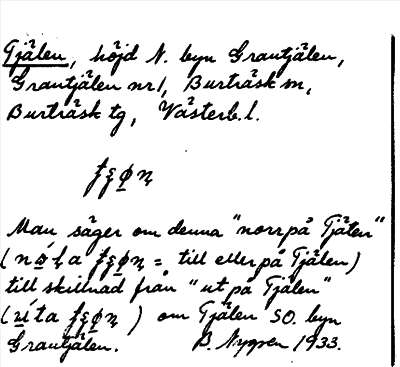 Tjälen, höjd N. byn Grantjälen,
Grantjälen nr 1, Burträsk sn,
Burträsk tg, Västerb. l.
Man säger om denna "norrpå Tjälen"
( = till eller på Tjälen)
till skillnad från "ut på Tjälen"
( ) om Tjälen SO. byn
Grantjälen. B. Nygren 1933.